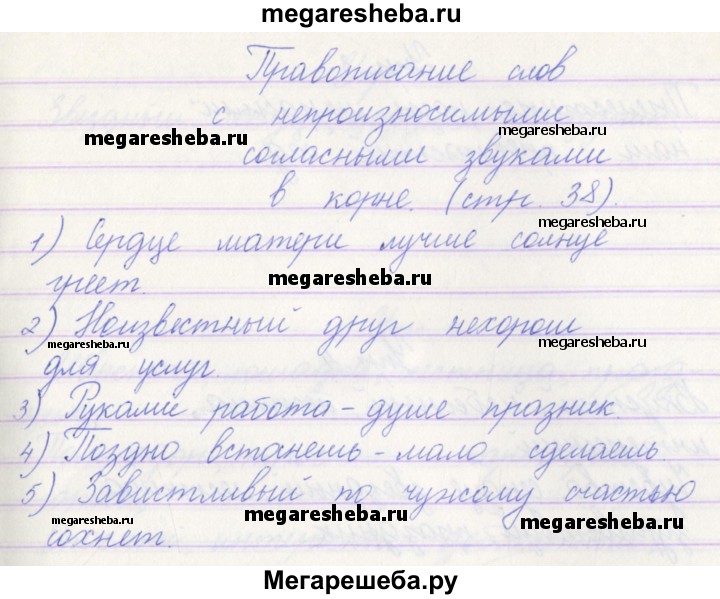 megaresheba.ru
Правописание слов
с непроизносимыми
megaresheba.ru
megaresheba.ru
согласными звуками
в корне. (стр. 38).
megaresheba.ru
1) Сердце матери лучше солнце
греет.
megaresheba.ru
2) Неизвестный друг нехорош
megaresheba.ru
megaresheba.ru
для услуг.
3) Руками работа - душе празник.
4) Поздно встанешь - мало сделаешь.
5) Завистливый по чужому счастью
megaresheba.ru
megaresheba.ru
megaresheba.ru
сохнет.
Мегарешеба.ру